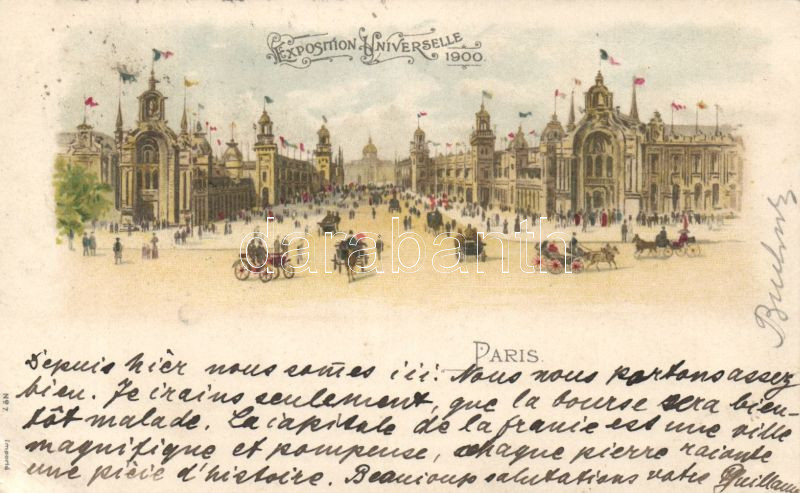 EXPOSITION UNIVERSELLE
1900.
darabanth
PARIS.
Depuis hièr nous somes iii! Nous nous portons assez
bien. Je crains seulement, que la bourse sera bien-
tôt malade. La capitale de la france est une ville
magnifique et pompeuse, chaque pierre raconte
une piéce d'histoire. Beaucoup salutations votre Guillaume
No 7.
Importé